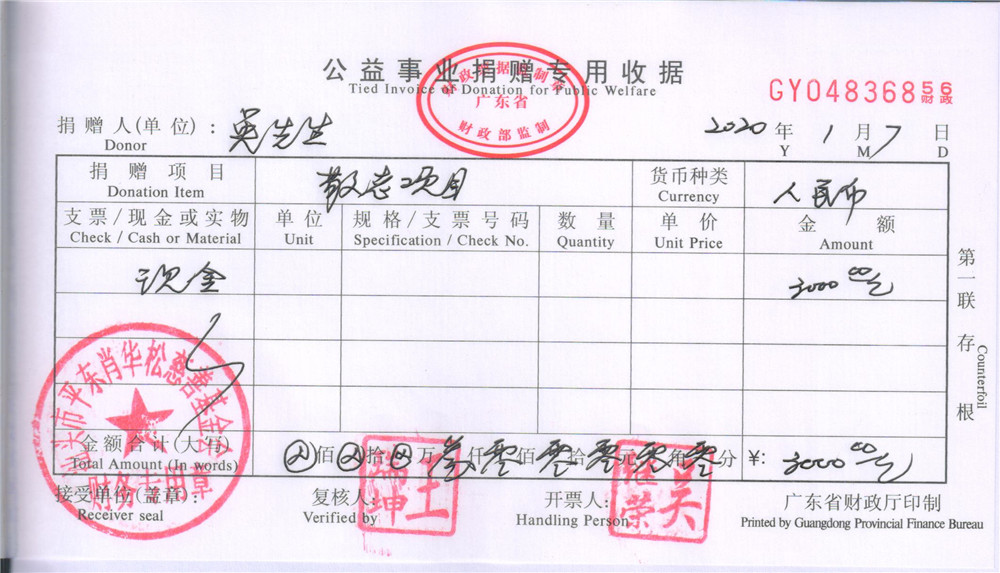 公益事业捐赠专用收据
Tied Invoice of Donation for Public Welfare
财政票据监制章
广东省
财政部监制
GY04836856
财政
捐赠人(单位)： 吴先生
Donor
2020 年 1 月 7 日
Y M D
捐赠项目 敬老项目 货币种类 人民币
Donation Item Currency
支票/现金或实物 单位 规格/支票号码 数量 单价 金额
Check / Cash or Material Unit Specification / Check No. Quantity Unit Price Amount
现金 3000 00元
第一联存根
Counterfoil
汕头市平东肖华松慈善基金会
财务专用章
金额合计(大写) 佰 拾 万 叁 仟 零 佰 零 拾 零 元 零 角 零 分 ¥: 3000 00元
Total Amount (In words)
接受单位(盖章)： 复核人： 开票人： 广东省财政厅印制
Receiver seal Verified by Handling Person Printed by Guangdong Provincial Finance Bureau
坤 王
荣 吴